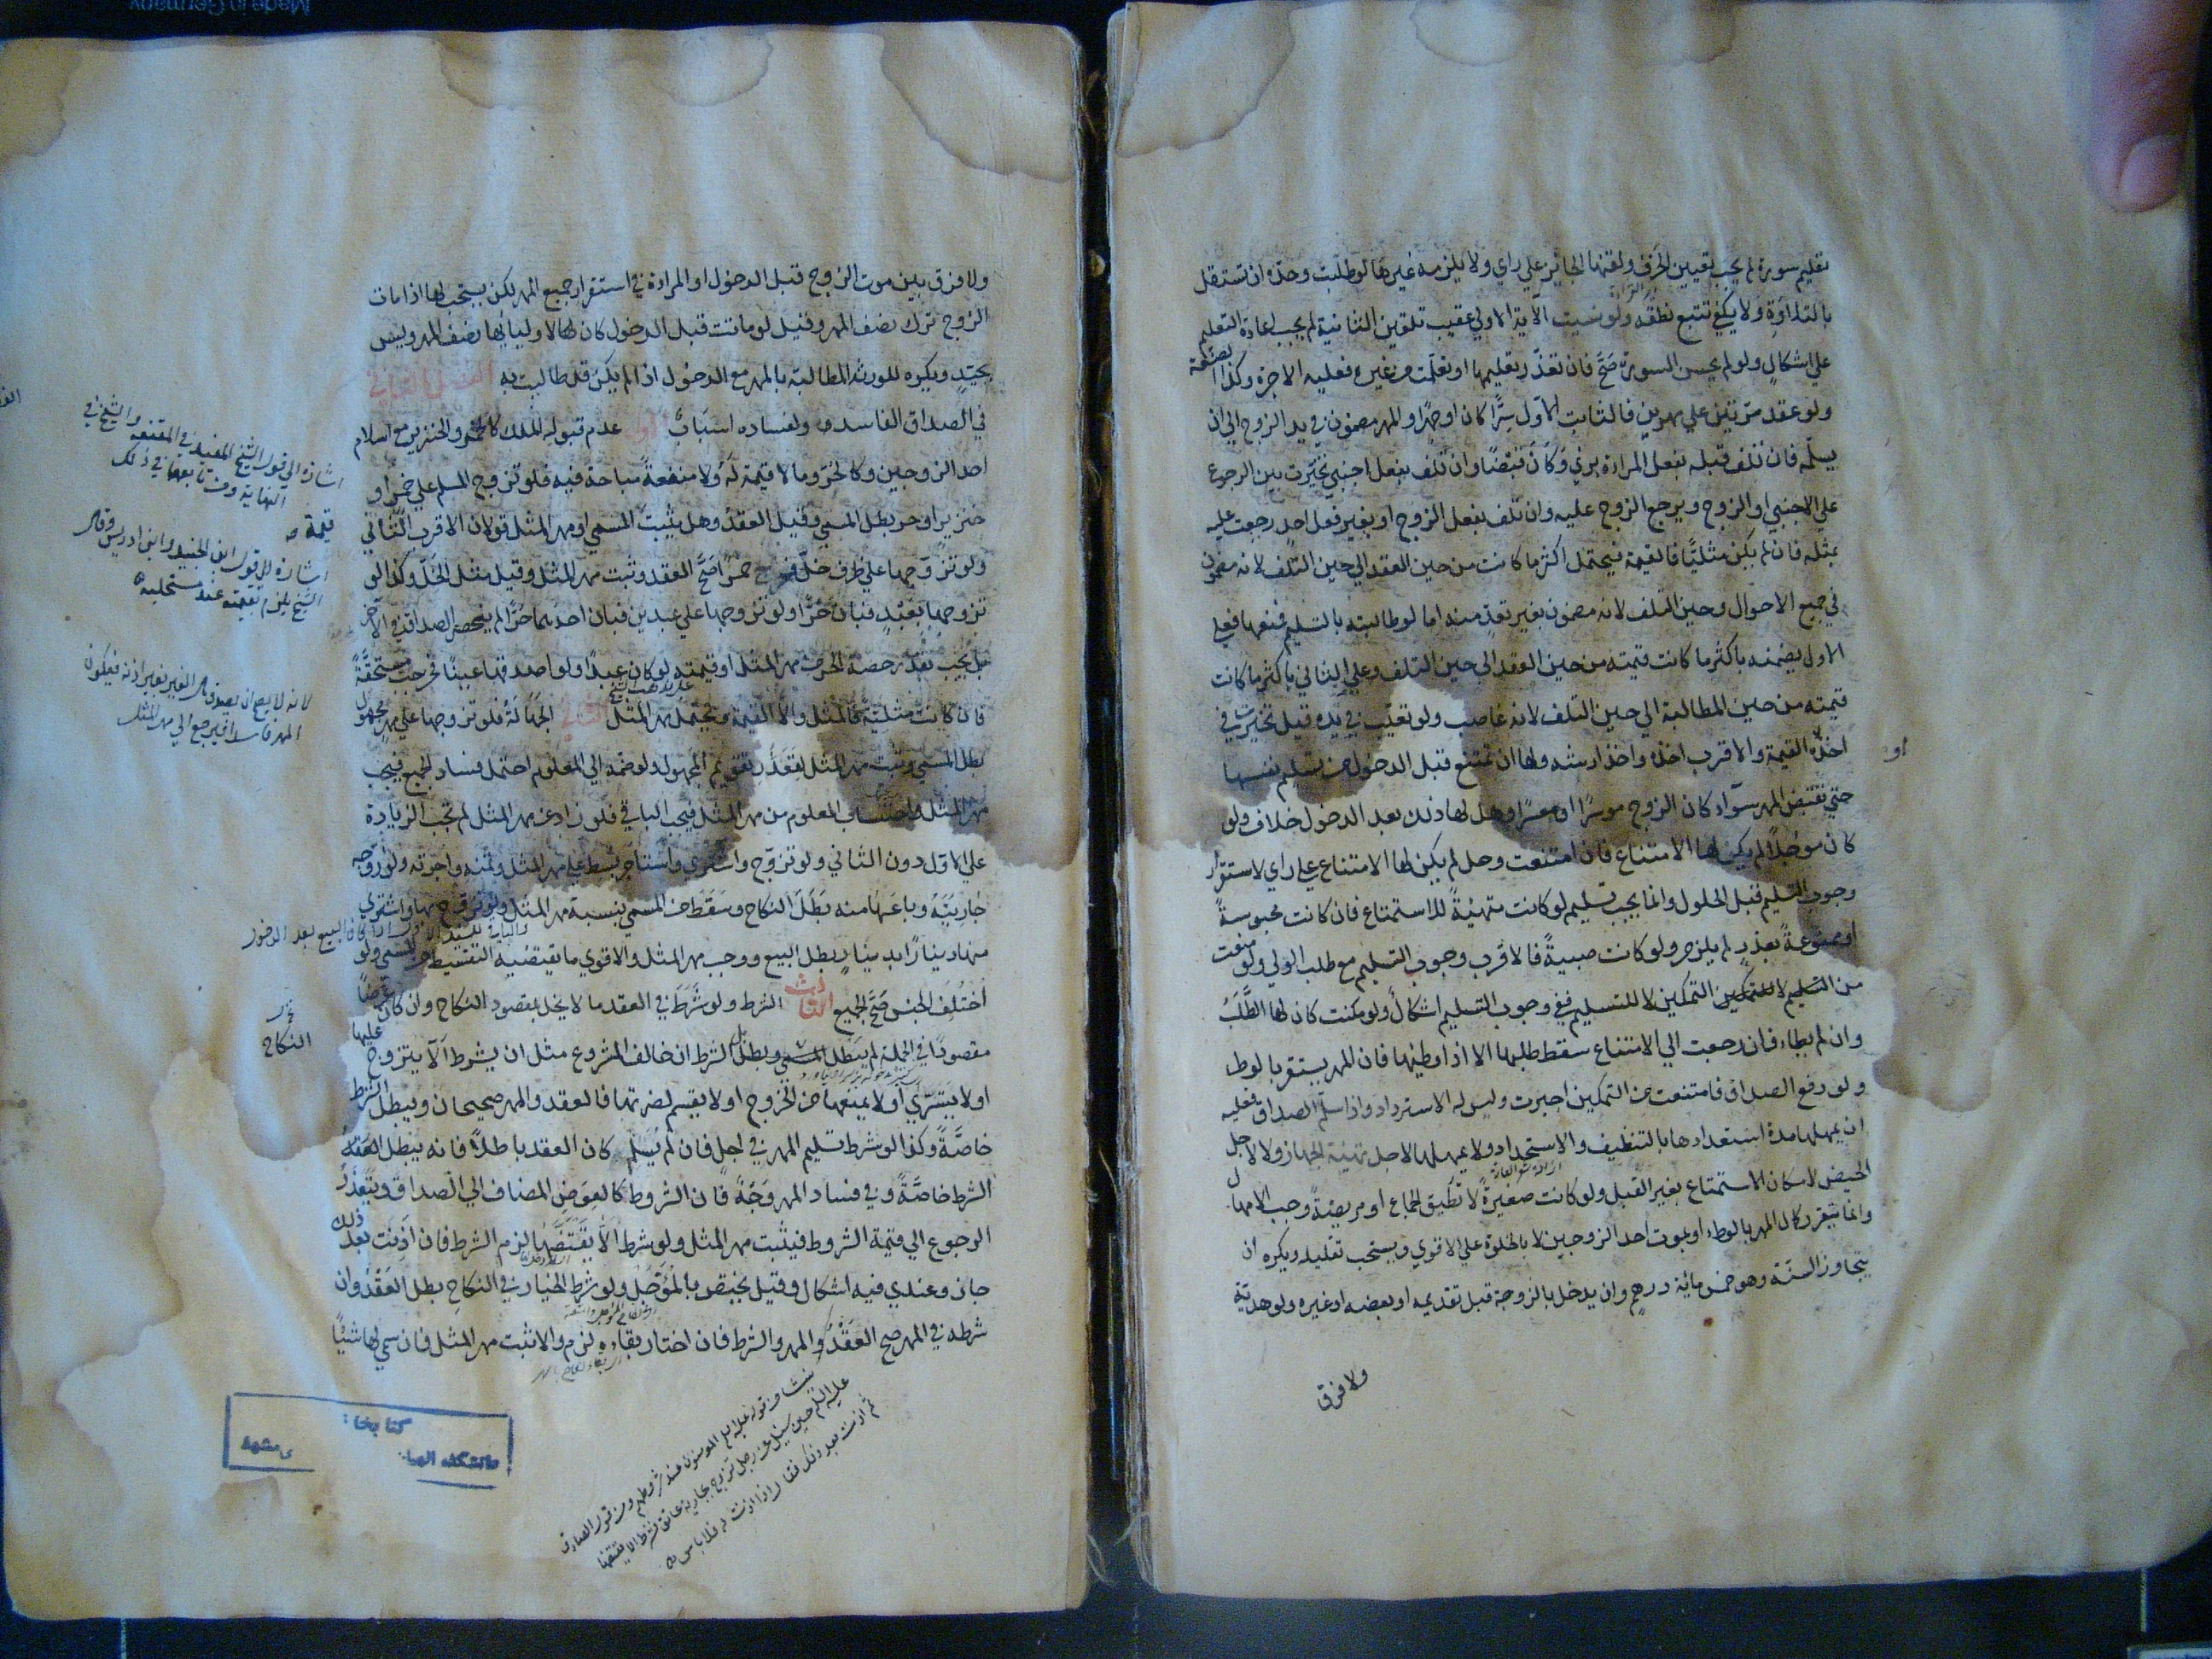 تعليم سورة لم يجب تعيين الحرف ولقنها الجائز على راي ولا يلزمه غيرها لو طلبت وحده ان تستقل
بالتلاوة ولا يكفي تتبع نطقه ولو نسيت الآية الاولى عقيب تلقين الثانية لم يجب اعادة التعليم
على اشكال ولو لم يحسن السورة صح فان تعذر تعليمها او تعلمت من غيره فعليه الاجرة وكذا الصنعة
ولو عقد مرتين على مهرين فالثابت الاول سرا كان او جهرا والمهر مضمون في يد الزوج الى ان
يسلمه فان تلف قبله بفعل المراة برئ وكان قبضا وان تلف بفعل اجنبي تخيرت بين الرجوع
على الاجنبي او الزوج ويرجع الزوج عليه وان تلف بفعل الزوج او بغير فعل احد رجعت عليه
بمثله فان لم يكن مثليا فالقيمة فيحتمل اكثر ما كانت من حين العقد الى حين التلف لانه مضمون
في جميع الاحوال وحين التلف لانه مضمون بغير تعد منه اما لو طالبته بالتسليم فمنعها فعلى
الاول يضمنه باكثر ما كانت قيمته من حين العقد الى حين التلف وعلى الثاني باكثر ما كانت
قيمته من حين المطالبة الى حين التلف لانه غاصب ولو تعيب في يده قيل تخيرت في
اخذ القيمة والاقرب اخذه واخذ ارشه ولها ان تمتنع قبل الدخول من تسليم نفسها
او
حتى تقبض المهر سواء كان الزوج موسرا او معسرا وهل لها ذلك بعد الدخول خلاف ولو
كان مؤجلا لم يكن لها الامتناع فان امتنعت وحل لم يكن لها الامتناع على راي لاستقرار
وجوب التسليم قبل الحلول وانما يجب تسليمه لو كانت متهيئة للاستمتاع فان كانت محبوسة
او ممنوعة بعذر لم يلزم ولو كانت صبية فالاقرب وجوب التسليم مع طلب الولي ولو منعت
من التسليم لا للتمكين التمكين لا للتسليم ففي وجوب التسليم اشكال ولو مكنت كان لها الطلب
وان لم يطاء فان رجعت الى الامتناع سقط طلبها الا اذا وطئها فان المهر يستقر بالوطى
ولو دفع الصداق فامتنعت من التمكين اجبرت وليس له الاسترداد واذا سلم الصداق فعليه
ان يمهلها مدة استعدادها بالتنظيف والاستحداد ولا يمهلها لاجل تهيئة الجهاز ولا لاجل
الحيض لامكان الاستمتاع بغير القبل ولو كانت صغيرة لا تطيق الجماع او مريضة وجب الامهال
وانما يتقرر كمال المهر بالوطء او بموت احد الزوجين لا بالخلوة على الاقوى ويستحب تقليله ويكره ان
يتجاوز السنة وهو خمس مائة درهم وان يدخل بالزوجة قبل تقديمه او بعضه او غيره ولو هدية
ولا فرق
ولا فرق بين موت الزوج قبل الدخول او المراة في استقرار جميع المهر لكن يستحب لها اذا مات
الزوج ترك نصف المهر وقيل لو ماتت قبل الدخول كان لها لاوليائها نصف المهر وليس
بجيد ويكره للورثة المطالبة بالمهر مع الدخول اذا لم يكن قد طالبت به الفصل الثاني
في الصداق الفاسد ولفساده اسباب الاول عدم قبوله للملك كالخمر والخنزير مع اسلام
احد الزوجين وكالحر وما لا قيمة له ولا منفعة مباحة فيه فلو تزوج المسلم على خمر او
خنزير او حر بطل المسمى وقيل العقد وهل يثبت المسمى او مهر المثل قولان الاقرب الثاني
ولو تزوجها على ظرف خل فخرج خمرا صح العقد وثبت مهر المثل وقيل مثل الخل وكذا لو
تزوجها بعبد فبان حرا ولو تزوجها على عبدين فبان احدهما حرا لم ينحصر الصداق في الآخر
بل يجب بقدر حصة الحر من مهر المثل او قيمته لو كان عبدا ولو اصدقها عينا فخرجت مستحقة
فان كانت مثلية فالمثل والا القيمة ويحتمل مهر المثل الثاني الجهالة فلو تزوجها على مهر مجهول
بطل المسمى وثبت مهر المثل لتعذر تقويم المجهول ولو ضمه الى المعلوم احتمل فساد الجميع فيجب
مهر المثل واحتساب المعلوم من مهر المثل فيجب الباقي فلو زاد عن مهر المثل لم تجب الزيادة
على الاول دون الثاني ولو تزوج واشترى واستاجر بسط على مهر المثل وثمنه واجرته ولو زوجه
جاريته وباعها منه بطل النكاح وسقط من المسمى بنسبة مهر المثل ولو تزوج بها واشترى
منها دينارا بدينار بطل البيع ووجب مهر المثل والاقوى ما يقتضيه التقسيط من المسمى ولو
اختلف الجنس صح الجميع الثالث الشرط ولو شرط في العقد ما لا يخل بمقصود النكاح وان كان غرضا
مقصودا في الجملة لم يبطل المسمى وبطل الشرط ان خالف المشروع مثل ان يشرط الا يتزوج عليها
النكاح
او لا يتسرى او لا يمنعها من الخروج او لا يقسم لضرتها فالعقد والمهر صحيحان ويبطل الشرط
خاصة وكذا لو شرط تسليم المهر في اجل فان لم يسلم كان العقد باطلا فانه يبطل العقد
الشرط خاصة وفي فساد المهر وجه فان الشروط كالعوض المضاف الى الصداق ويتعذر
الرجوع الى قيمة الشروط فيثبت مهر المثل ولو شرط الا يقتضها لزم الشرط فان اذنت بعد ذلك
جاز وعندي فيه اشكال وقيل يختص بالمؤجل ولو شرط الخيار في النكاح بطل العقد وان
شرطه في المهر صح العقد والمهر والشرط فان اختار بقاءه لزم والا ثبت مهر المثل فان سمى لها شيئا
اشارة الى قول الشيخ المفيد في المقنعة والشيخ في
النهاية ومن تابعهما في ذلك
قيمة
اشارة الى قول ابن الجنيد وابن ادريس وقال
الشيخ يلزم بقيمته عند مستحليه
المهر فاسدا فيرجع الى مهر المثل
المومنون عند شروطهم ومن قول الصادق
عليه السلم حين سئل عن رجل تزوج بجارية عاتق فشرط الا يقتضها
ثم اذنت بعد ذلك فقال اذا اذنت له فلا باس
كتابخانه
دانشكده الهيات
مشهد
Made in Germany